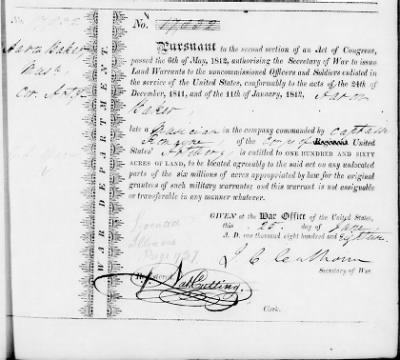 No.
Aaron Baker
WAR DEPARTMENT.
Pursuant to the second section of an Act of Congress,
passed the 6th of May, 1812, authorising the Secretary of War to issue
Land Warrants to the noncommissioned Officers and Soldiers enlisted in
the service of the United States, conformably to the acts of the 24th of
December, 1811, and of the 11th of January, 1812, Aaron
Baker,
late a Musician in the company commanded by Captain
of the Corps of United
States' is entitled to ONE HUNDRED AND SIXTY
ACRES OF LAND, to be located agreeably to the said act on any unlocated
parts of the six millions of acres appropriated by law for the original
grantees of such military warrants; and this warrant is not assignable
or transferable in any manner whatever.
GIVEN at the War Office of the United States,
this 25 day of
A. D. one thousand eight hundred and
J C Calhoun
Secretary of War.
Nat Cutting.
Clerk.